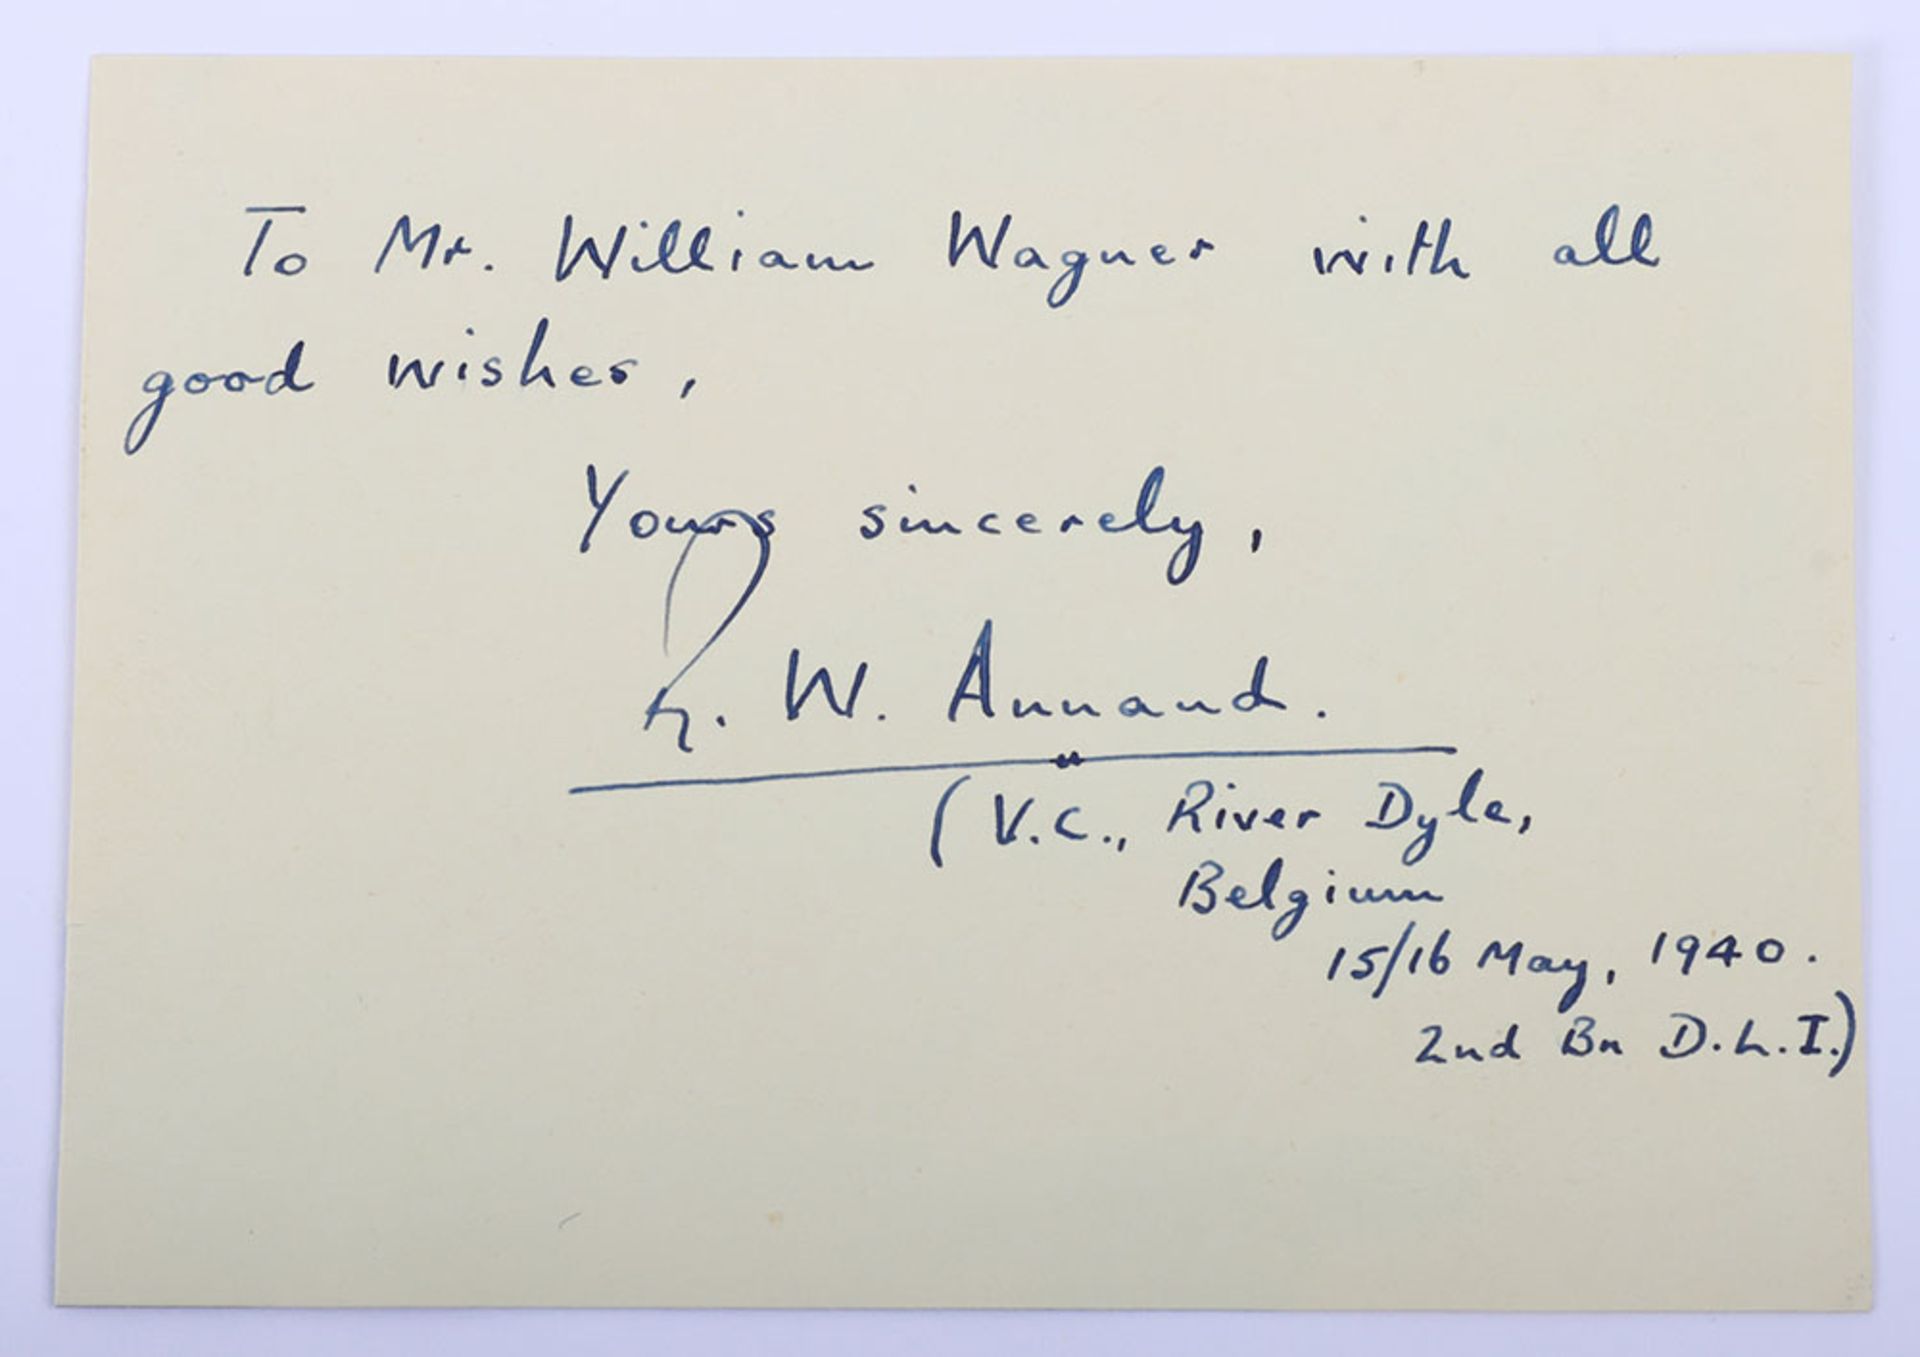 To Mr. William Wagner with all
good wishes,
Yours sincerely,
R. W. Annand.
(V.C., River Dyle,
Belgium
15/16 May, 1940.
2nd Bn D.L.I.)